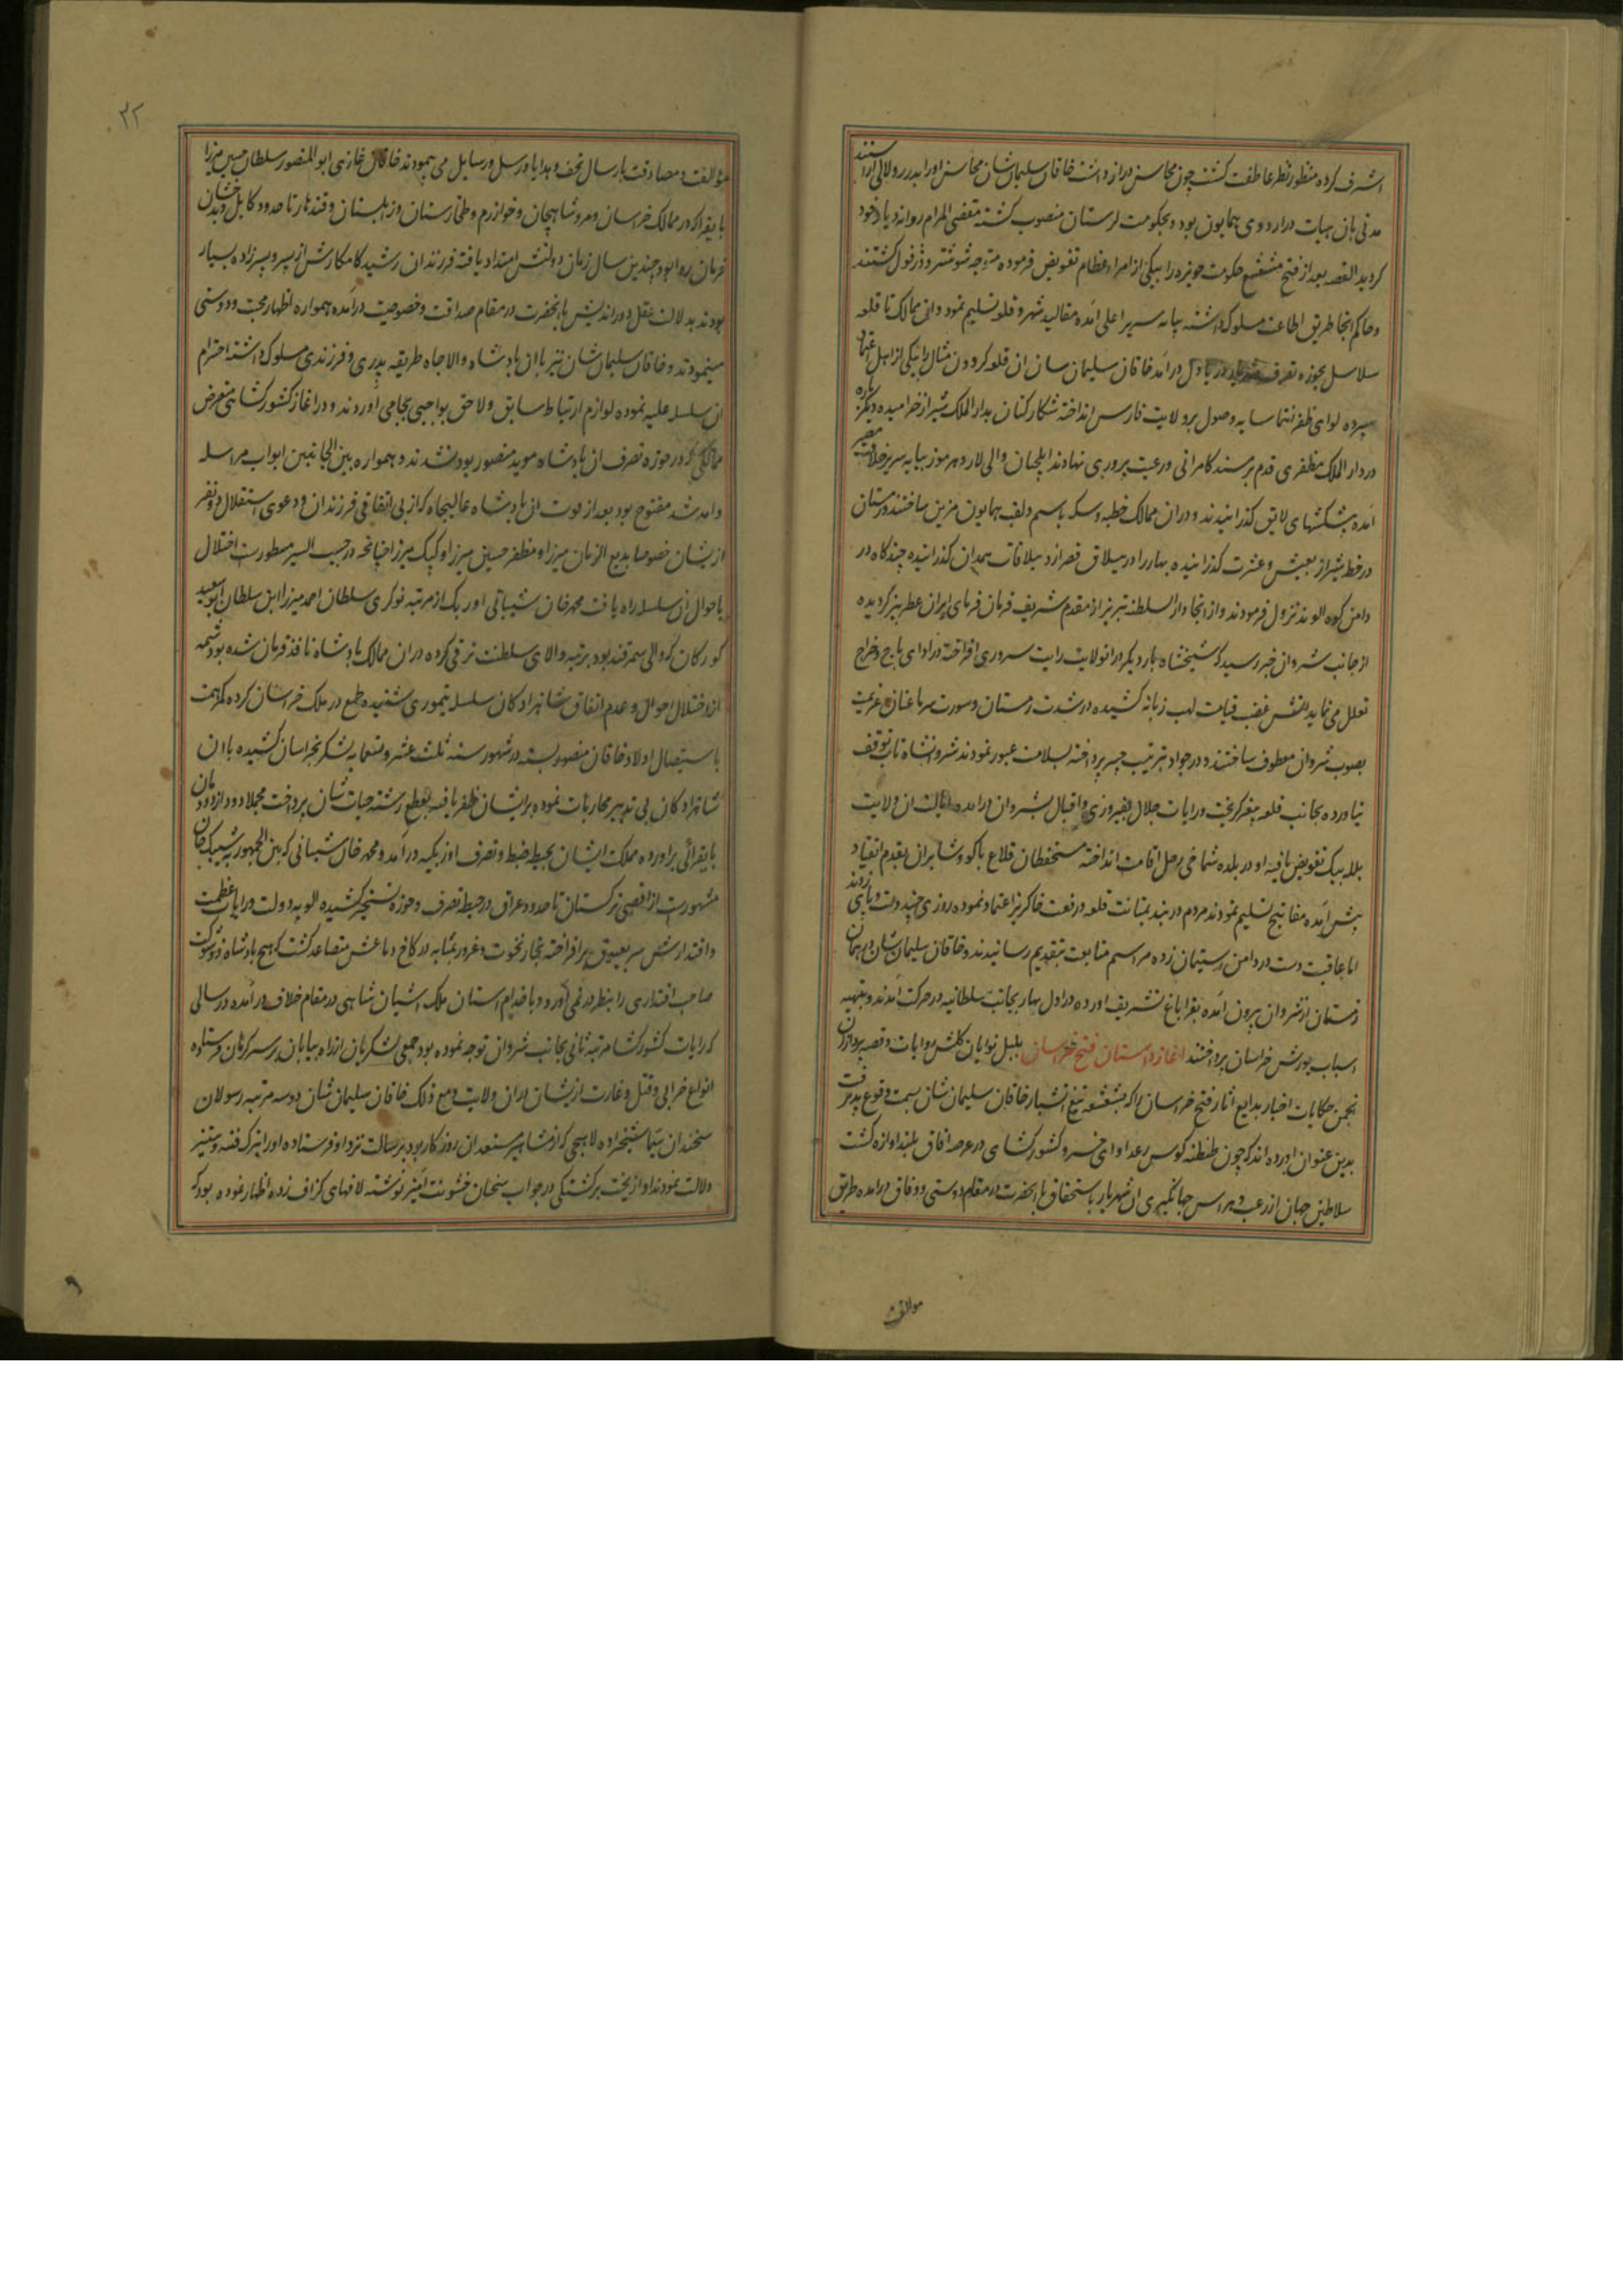 اشرف کرده منظور نظر عاطفت کشت چون محاسن دراز داشت خاقان سلیمان شان محاسن او را بدرر و لالی آراستند
مدتی بان هیات در اردوی همایون بود و بحکومت لرستان منصوب کشته مقضی المرام روانه دیار خود
کردید القصه بعد از فتح مشعشع حکومت حویزه را بیکی از امراء عظام تفویض فرموده متوجه شوشتر و دزفول کشتند
و حاکم انجا طریق اطاعت مسلوک داشته بپایه سریر اعلی آمده مقالید شهر و قلعه تسلیم نمود و آن ممالک تا قلعه
سلاسل بحوزه تصرف دریا دل درآمد خاقان سلیمان شان ان قلعه کردون مثال را بیکی از اهل اعتماد
سپرده لوای ظفر انتما سایه وصول بر ولایت فارس انداخته شکار کنان بدار الملک شیراز خرامیده دیکر باره
در دار الملک مظفری قدم بر مسند کامرانی و رعیت پروری نهادند ایلچیان والی لار و هرموز بپایه سریر خلافت مصیر
آمده پیشکشهای لایق کذرانیدند و در ان ممالک خطبه و سکه باسم و لقب همایون مزین ساختند زمستان
در خطه شیراز بعیش و عشرت کذرانیده بهار را در ییلاق قصر از ییلاقات همدان کذرانیده چندکاه در
دامن کوه الوند نزول فرمودند و از انجا دار السلطنه تبریز از مقدم شریف فرمان فرمای ایران عطربیز کردیده
از جانب شروان خبر رسید که شیخشاه بار دیکر در انولایت رایت سروری افراخته در ادای باج و خراج
تعلل می نماید آتش غضب قیامت لهب زبانه کشیده در شدت زمستان و سورت سرما عنان عزیمت
بصوب شروان معطوف ساختند و در جواد بترتیب جسر پرداخته بسلامت عبور نمودند شروانشاه تاب توقف
نیاورده بجانب قلعه بیغرد کریخت و رایات جلال بفیروزی و اقبال بشروان درامده ایالت ان ولایت
بلله بیک تفویض یافته او در بلده شماخی رحل اقامت انداخته مستحفظان قلاع باکو و شابران بقدم انقیاد
پیش آمده مفاتیح تسلیم نمودند مردم دربند بمتانت قلعه و رفعت خاکریز اعتماد نموده روزی چند دست و پایی زدند
اما عاقبت دست در دامن استیمان زده مراسم متابعت بتقدیم رسانیدند و خاقان سلیمان شان در همان
زمستان از شروان بیرون آمده بقراباغ تشریف اورده در اول بهار بجانب سلطانیه در حرکت آمدند و بتهیه
اسباب یورش خراسان پرداختند اغاز داستان فتح خراسان بلبل نوایان کلشن روایات و قصه پردازان
انجمن حکایات اخبار بدایع اثار فتح خراسان را که بشعشعه تیغ آتشبار خاقان سلیمان شان سمت وقوع پذیرفت
بدین عنوان اورده اند که چون طنطنه کوس رعد اوای خسرو کشور کشای در عرصه افاق بلند اوازه کشت
سلاطین جهان از رعب و هراس جهانگیری ان شهریار باستحقاق با انحضرت در مقام دوستی و وفاق درآمده طریق
موالفت
۳۲
موالفت و مصادقت بارسال تحف و هدایا و رسل و رسایل می پیمودند خاقان غازی ابوالمنصور سلطان حسین میرزا
بایقرا که در ممالک خراسان و مرو شاهیجان و خوارزم و طخارستان و زابلستان و قندهار تا حدود کابل و بدخشان
فرمان روا بود چندین سال زمان دولتش امتداد یافته فرزندان رشید کامکارش از پسر و پسرزاده بسیار
بودند بدلالت عقل دوراندیش بانحضرت در مقام صداقت و خصوصیت درآمده همواره اظهار محبت و دوستی
مینمودند و خاقان سلیمان شان نیز باان پادشاه والاجاه طریقه پدری و فرزندی مسلوک داشته احترام
ان سلسله علیه نموده لوازم ارتباط سابق و لاحق بواجبی بجا می آوردند و در اغاز کشور کشایی متعرض
ممالکی که در حوزه تصرف ان پادشاه موید منصور بود نشدند و همواره بین الجانبین ابواب مراسله
و آمد شد مفتوح بود بعد از فوت ان پادشاه عالیجاه که از بی اتفاقی فرزندان و دعوی استقلال دو نفر
ازیشان خصوصا بدیع الزمان میرزا و مظفر حسین میرزا و کپک میرزا چنانچه در حبیب السیر مسطورست اختلال
باحوال ان سلسله راه یافت محمد خان شیبانی اوزبک از مرتبه نوکری سلطان احمد میرزا ابن سلطان ابوسعید
کورکان که والی سمرقند بود برتبه والای سلطنت ترقی کرده در ان ممالک پادشاه نافذ فرمان شده بود شمه
از اختلال احوال و عدم اتفاق شاهزادکان سلسله تیموری شنیده طمع در ملک خراسان کرده کمر همت
باستیصال اولاد خاقان منصور بسته در شهور سنه ثلث عشر و تسعمایه لشکر بخراسان کشیده باان
شاهزادکان بی تدبیر محاربات نموده بر ایشان ظفر یافته بقطع رشته حیات شان پرداخت مجملا دود از دودمان
بایقرائی برآورده مملکت ایشان بحیطه ضبط و تصرف اوزبکیه درآمد و محمد خان شیبانی که بین الجمهور به شیبک خان
مشهورست از اقصی ترکستان تا حدود عراق در حیطه تصرف و حوزه تسخیر کشیده الویه دولت و رایات عظمت
و اقتدارش سر بعیوق برافراخته بخار نخوت و غرور بمثابه در کاخ دماغش متصاعد کشت که هیچ پادشاه ذو شوکت
صاحب اقتداری را بنظر در نمی آورد و با خدام استان ملک آشیان شاهی در مقام خلاف درآمده در سالی
که رایات کشورکشا مرتبه ثانی بجانب شروان توجه نموده بود جمعی لشکریان از راه بیابان بر سر کرمان فرستاده
انواع خرابی و قتل و غارت ازیشان دران ولایت مع ذلک خاقان سلیمان شان دو سه مرتبه رسولان
سخندان سیما شیخزاده لاهیجی که از مشاهیر مستعدان روزکار بود برسالت نزد او فرستاده او را بترک فتنه و ستیز
دلالت نمودند او از بخت برکشتکی در جواب سخنان خشونت آمیز نوشته لافهای کزاف زده اظهار نموده بود که